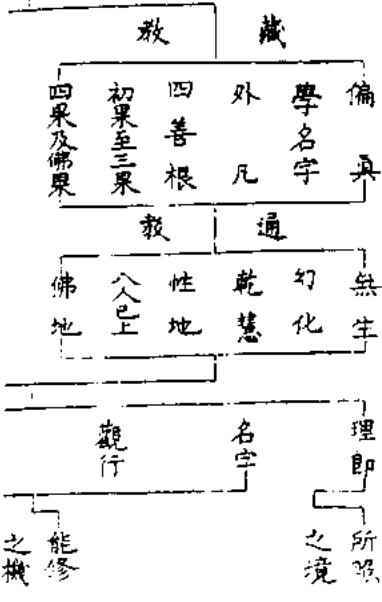 藏教
偏真
學名字
外凡
四善根
初果至三果
四果及佛果
通教
無生
幻化
乾慧
性地
八人已上
佛地
理即
名字
觀行
所照
之境
能修
之機